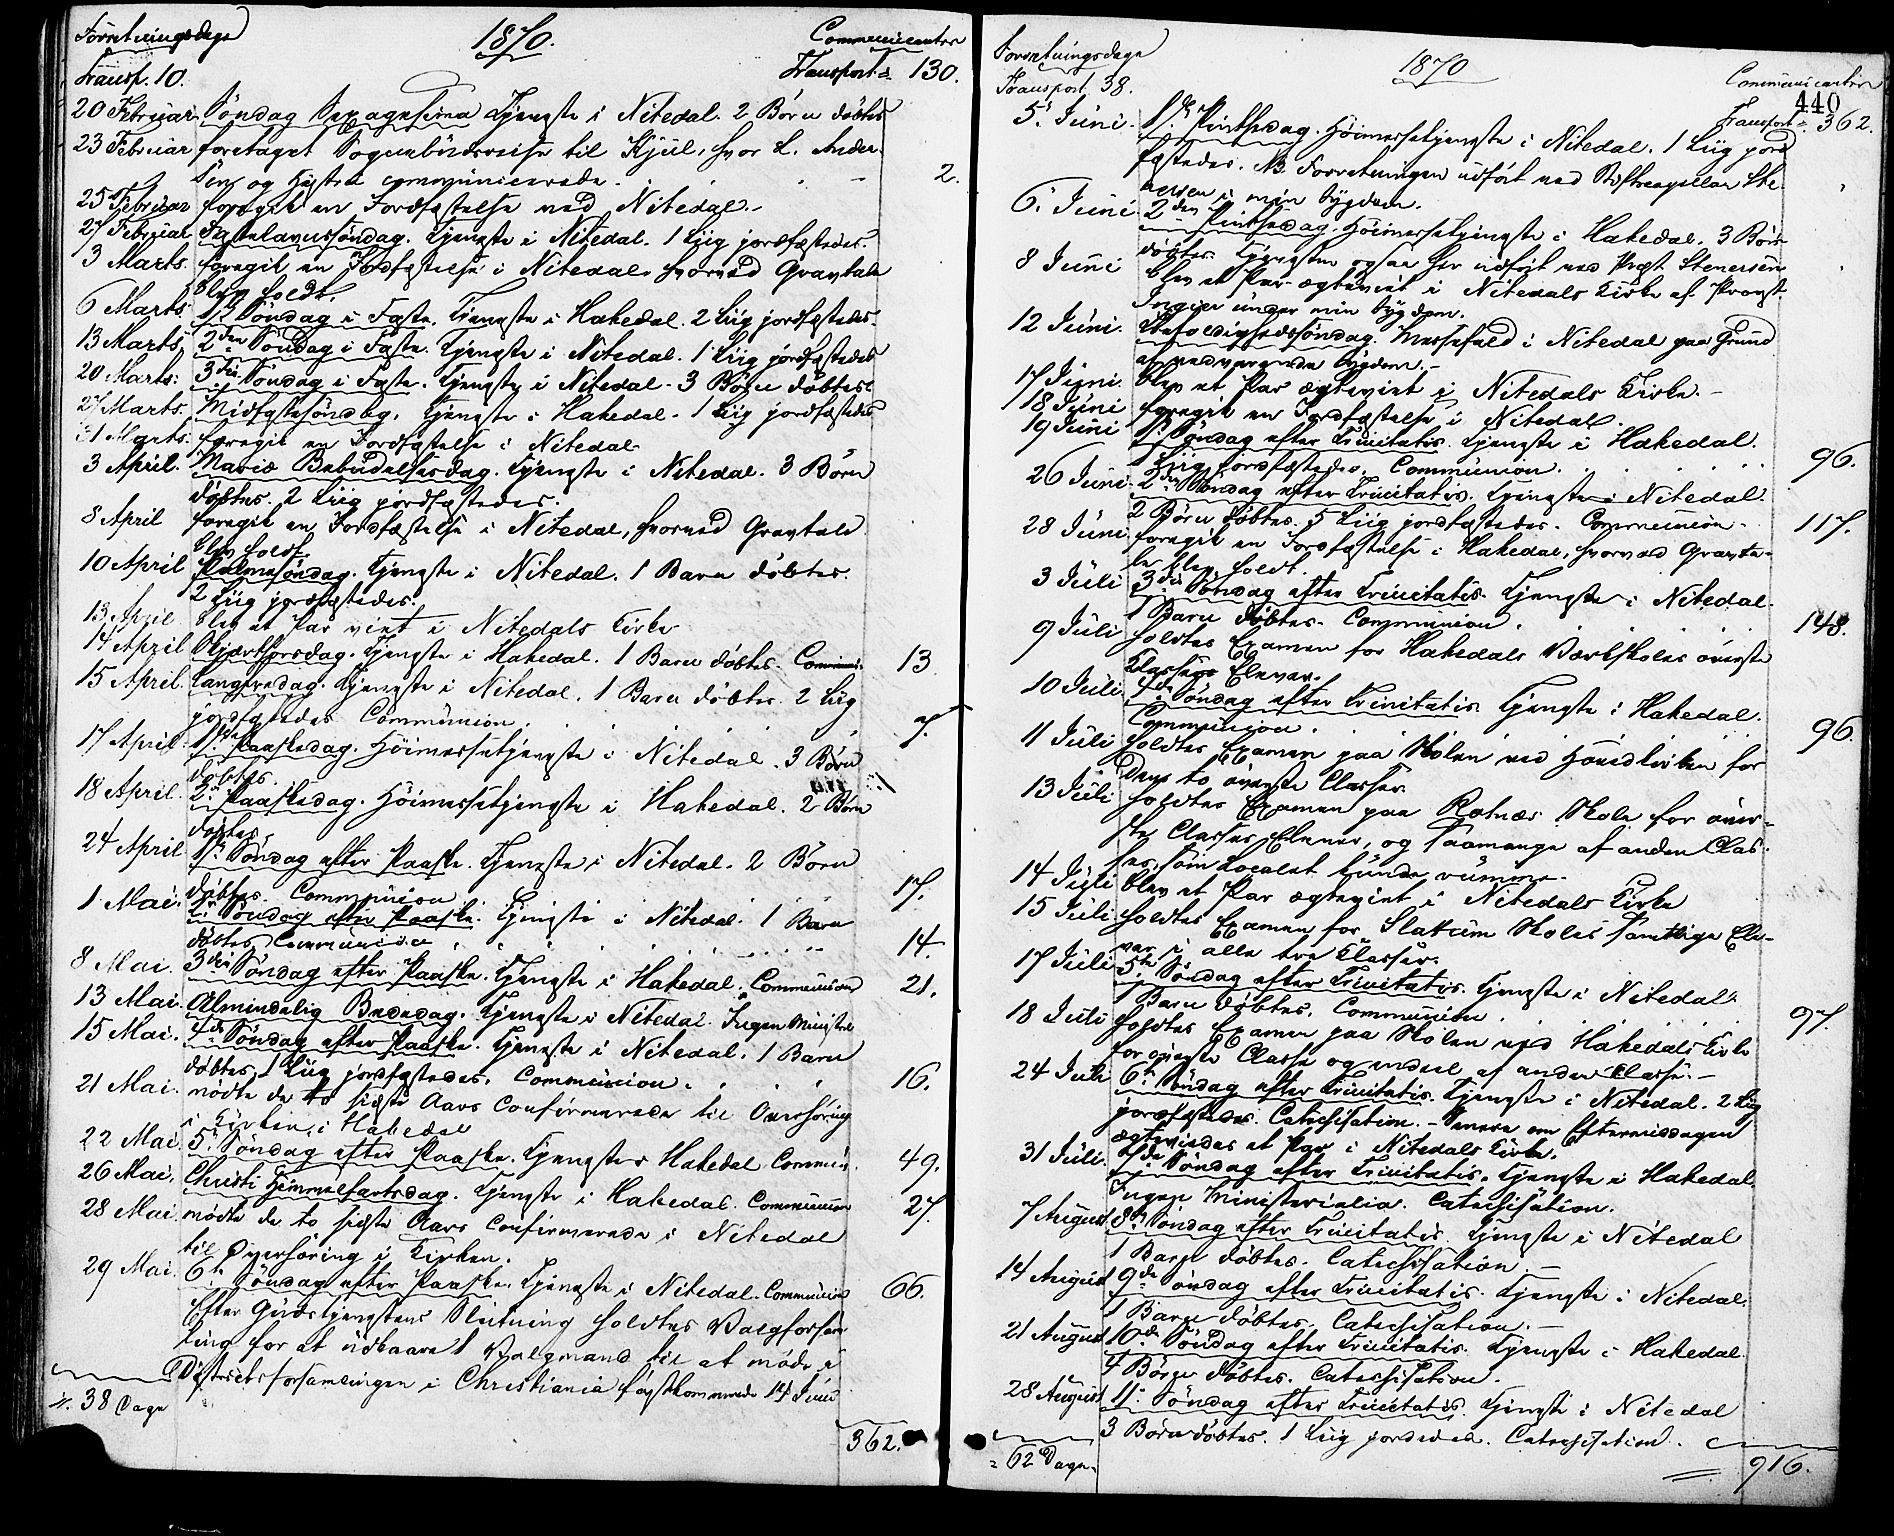 Forretningsdage
1870.
Communicanter
Transp. 10.
Transport = 130.
20 Februar Søndag Sexagesima Tjeneste i Nitedal. 2 Børn døbtes
23 Februar foretaget Sognebudsreise til Kjul, hvor L. Ander-
sen og Hustru communicerede. 2.
25 Februar foregik en Jordfæstelse ved Nitedal.
27 Februar Fastelavnssøndag. Tjeneste i Nitedal. 1 Liig jordfæstedes.
3 Marts. foregik en Jordfæstelse i Nitedal, hvorved Gravtale
blev holdt.
6 Marts 1ste Søndag i Faste. Tjeneste i Hakedal. 2 Liig jordfæstedes.
13 Marts 2den Søndag i Faste. Tjeneste i Nitedal. 1 Liig jordfæstedes
20 Marts: 3die Søndag i Faste. Tjeneste i Nitedal. 3 Børn døbtes
27 Marts. Midfastesøndag. Tjeneste i Hakedal. 1 Liig jordfæstedes
31 Marts. foregik en Jordfæstelse i Nitedal
3 April. Mariæ Bebudelsesdag. Tjeneste i Nitedal. 3 Børn
døbtes. 2 Liig jordfæstedes.
8 April foregik en Jordfæstelse i Nitedal, hvorved Gravtale
blev holdt.
10 April Palmesøndag. Tjeneste i Nitedal. 1 Barn døbtes.
2 Liig jordfæstedes.
13 April blev et Par viet i Nitedals Kirke
14 April Skjærthorsdag. Tjeneste i Hakedal. 1 Barn døbtes. Commun: 13
15 April. Langfredag. Tjeneste i Nitedal. 1 Barn døbtes. 2 Liig
jordfæstedes Communion. 7.
17 April. 1ste Paaskedag. Høimessetjeneste i Nitedal. 3 Børn
døbtes.
18 April. 2. Paaskedag. Høimessetjeneste i Hakedal. 2 Børn
døbtes.
24 April 1ste Søndag efter Paaske. Tjeneste i Nitedal. 2 Børn
døbtes. Communion 17.
1 Mai. 2. Søndag efter Paaske. Tjeneste i Nitedal. 1 Barn
døbtes Communion 14.
8 Mai. 3die Søndag efter Paaske. Tjeneste i Hakedal. Communion 21.
13 Mai. Almindelig Bededag. Tjeneste i Nitedal. Ingen Minister
15 Mai. 4de Søndag efter Paaske. Tjeneste i Nitedal. 1 Barn
døbtes, 1 Liig jordfæstedes. Communion. 16.
21 Mai. mødte de to sidste Aars Confirmerede til Overhøring
i Kirken i Hakedal
22 Mai 5. Søndag efter Paaske. Tjeneste i Hakedal Commun. 49.
26 Mai. Christi Himmelfartsdag. Tjeneste i Hakedal. Communion 27.
28 Mai mødte de to sidste Aars Confirmerede i Nitedal
til Overhøring i Kirken.
29 Mai. 6te Søndag efter Paaske. Tjeneste i Nitedal. Communion 66.
Efter Gudstjenestens Slutning holdtes Valgforsam-
ling for at udkaare 1 Valgmand til at møde i
Districtsforsamlingen i Christiania førstkommende 14 Juni
38 Dage
362.
Forretningsdage
1870
Communicanter
Transport 38.
440
Transport 362.
5. Juni. 1ste Pintsedag. Høimessetjeneste i Nitedal. 1 Liig jord-
fæstedes. NB. Forretningen udført ved Stiftscapellan Ste-
nersen i min Sygdom.
6. Juni 2den Pintsedag. Høimessetjeneste i Hakedal. 3 Børn
døbtes. Tjenesten ogsaa her udført ved Præst Stenersen
8 Juni blev et Par ægteviet i Nitedals Kirke af Provst
under min Sygdom.
12 Juni. Trefoldighedssøndag. Messefald i Nitedal paa Grund
af vedvarende Sygdom.
17 Juni. blev et Par ægteviet i Nitedals Kirke.
18 Juni foregik en Jordfæstelse i Nitedal.
19 Juni 1. Søndag efter Trinitatis. Tjeneste i Hakedal.
Liig jordfæstedes. Communion. 96.
26 Juni. 2den Søndag efter Trinitatis. Tjeneste i Nitedal.
2 Børn døbtes. 5 Liig jordfæstedes. Communion. 117.
28 Juni foregik en Jordfæstelse i Hakedal, hvorved Gravta-
le blev holdt.
3 Juli 3die Søndag efter Trinitatis. Tjeneste i Nitedal.
1 Barn døbtes. Communion. 148.
9 Juli holdtes Examen for Hakedals Værkskoles øverste
Classes Elever.
10 Juli 4de Søndag efter Trinitatis. Tjeneste i Hakedal.
Communion. 96.
11 Juli holdtes Examen paa Skolen ved for
Dens to øverste Classer.
13 Juli holdtes Examen paa Rotnæs Skole for øver-
ste Classes Elever, og saamange af anden Clas-
ses, som Localet kunde rumme.
14 Juli blev et Par ægteviet i Nitedals Kirke
15 Juli. holdtes Examen for Slattum Skoles samtlige Ele-
ver i alle tre Classer.
17 Juli 5te Søndag efter Trinitatis. Tjeneste i Nitedal.
1 Barn døbtes. Communion. 97.
18 Juli holdtes Examen paa Skolen ved Hakedals Kirke
for øverste Classe og endeel af anden Classe.
24 Juli 6. Søndag efter Trinitatis. Tjeneste i Nitedal. 2 Liig
jordfæstedes. Catechisation. Senere om Eftermiddagen
ægteviedes et Par i Nitedals Kirke.
31 Juli. 7de Søndag efter Trinitatis. Tjeneste i Hakedal.
Ingen Ministerialia. Catechisation.
7 August 8de Søndag efter Trinitatis. Tjeneste i Nitedal
1 Barn døbtes. Catechisation.
14 August 9de Søndag efter Trinitatis. Tjeneste i Nitedal.
1 Barn døbtes. Catechisation.
21 August 10de Søndag efter Trinitatis. Tjeneste i Hakedal.
4 Børn døbtes. Catechisation.
28 August 11. Søndag efter Trinitatis. Tjeneste i Nitedal
3 Børn døbtes. 1 Liig jordedes. Catechisation.
= 62 Dage.
916.